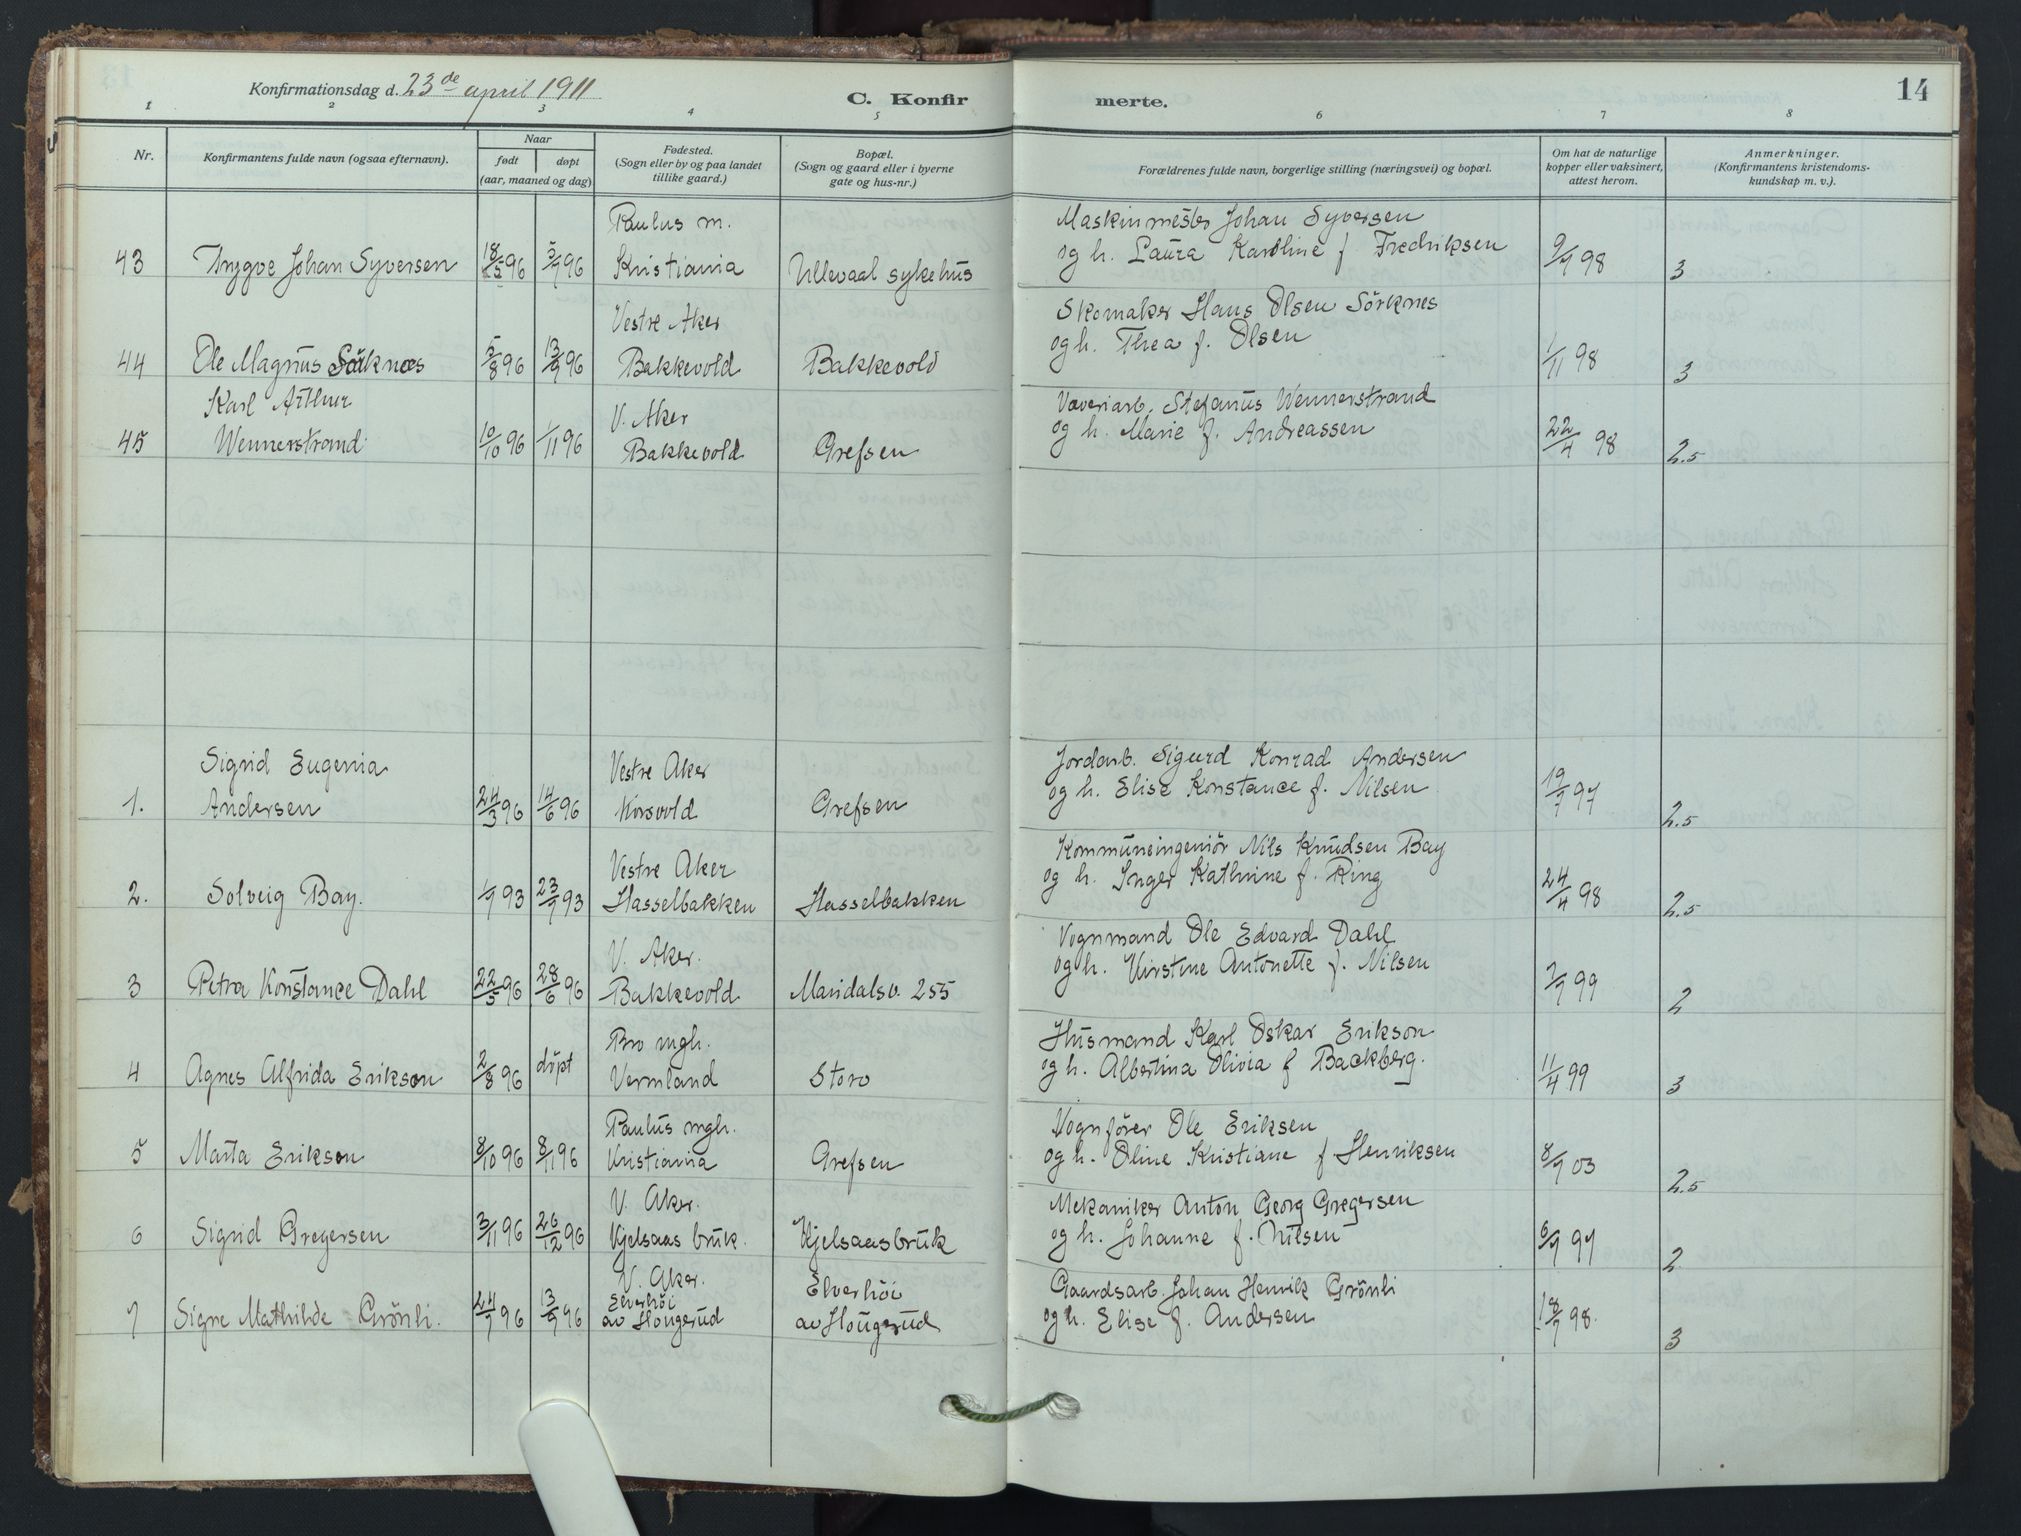 Konfirmationsdag d. 23de april 1911
C. Konfirmerte.
14
1 2 3 4 5 6 7 8
Nr.
Konfirmantens fulde navn (ogsaa efternavn).
Naar
født
døpt
(aar, maaned og dag)
Fødested.
(Sogn eller by og paa landet
tillike gaard.)
Bopæl.
(Sogn og gaard eller i byerne
gate og hus-nr.)
Forældrenes fulde navn, borgerlige stilling (næringsvei) og bopæl.
Om hat de naturlige
kopper eller vaksinert,
attest herom.
Anmerkninger.
(Konfirmantens kristendoms-
kundskap m. v.).
Paulus m. Maskinmester Johan Syversen
43 Trygve Johan Syversen 18/5 96 5/7 96 Kristiania Ullevaal sykehus og h. Laura Karoline f. Fredriksen 9/9 98 3
Vestre Aker Skomaker Hans Olsen Sörknes
44 Ole Magnus Sörknes 5/8 96 13/9 96 Bakkevold Bakkevold og h. Thea f. Olsen 1/11 98 3
Karl Arthur V. Aker Væveriarb. Stefanus Wennerstrand
45 Wennerstrand 10/10 96 1/11 96 Bakkevold Grefsen og h. Marie f. Andreassen 22/4 98 2.5
Sigrid Eugenia Vestre Aker Jordarb. Sigurd Konrad Andersen
1. Andersen 24/3 96 14/6 96 Korsvold Grefsen og h. Elise Konstance f. Nilsen 19/7 97 2.5
Vestre Aker Kommuneingeniör Nils Knudsen Bay
2. Solveig Bay. 4/7 93 23/7 93 Hasselbakken Hasselbakken og h. Inger Kathrine f. Ring 24/4 98 2.5
V. Aker. Vognmand Ole Edvard Dahl
3 Petra Konstance Dahl 22/5 96 28/6 96 Bakkevold Maridalsv. 255 og h. Kirstine Antonette f. Nilsen 7/7 99 2
Bro mgh. Husmand Karl Oskar Erikson
4 Agnes Alfrida Erikson 2/8 96 döpt Vermland Storo og h. Albertina Olivia f Backberg. 11/4 99 3
Paulus mgh. Vognförer Ole Eriksen
5 Marta Eriksen 8/10 96 8/11 96 Kristiania Grefsen og h. Oline Kristiane f. Henriksen 8/7 03 2.5
V. Aker. Mekaniker Anton Georg Gregersen
6 Sigrid Gregersen 3/11 96 26/12 96 Kjelsaas bruk. Kjelsaasbruk og h. Johanne f. Nilsen 6/9 97 2
V. Aker. Elverhöi Gaardsarb. Johan Henrik Grönli
Elverhöi
7 Signe Mathilde Grönli. 24/7 96 13/9 96 av Hougerud av Hougerud og h. Elise f. Andersen 18/7 98. 3